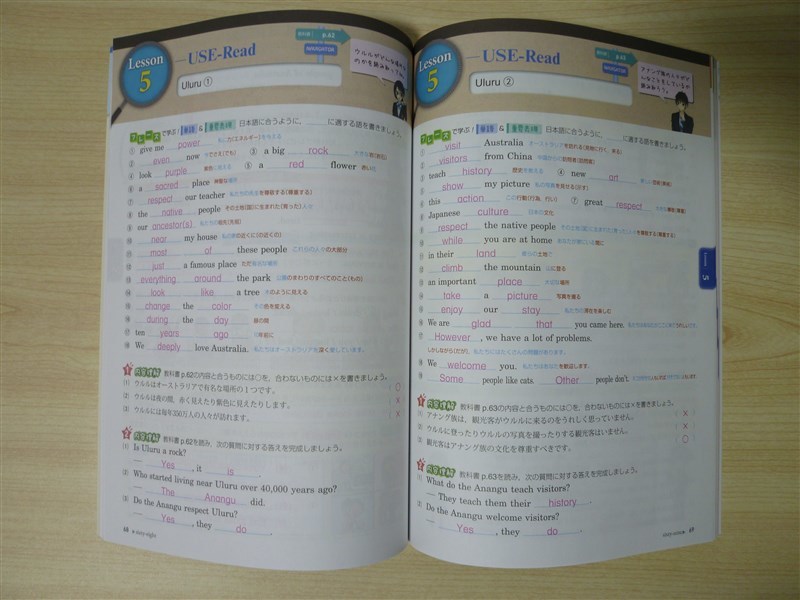 Lesson 5
USE-Read
p.62
NAVIGATOR
Uluru ①
フレーズで学ぶ! 単語 & 重要表現 日本語に合うように、____に適する語を書きましょう。
① give me power
② even now
③ a big rock
④ look purple
⑤ a red flower
⑥ a sacred place 神聖な場所
⑦ respect our teacher
⑧ the native people
⑨ our ancestor(s)
⑩ near my house
⑪ most of these people これらの人々の大部分
⑫ just a famous place ただ有名な場所
⑬ everything around the park 公園のまわりのすべてのこと(もの)
⑭ look like a tree 木のように見える
⑮ change the color その色を変える
⑯ during the day 昼の間
⑰ ten years ago 10年前に
⑱ We deeply love Australia. 私たちはオーストラリアを深く愛しています。
内容理解 教科書 p.62の内容と合うものには○を、合わないものには×を書きましょう。
(1) ウルルはオーストラリアで有名な場所の1つです。 ( ○
(2) ウルルは夜の間、赤く見えたり紫色に見えたりします。 ( ×
(3) ウルルには毎年350万人の人々が訪れます。 ( ×
内容理解 教科書 p.62を読み、次の質問に対する答えを完成しましょう。
(1) Is Uluru a rock?
— Yes , it is .
(2) Who started living near Uluru over 40,000 years ago?
— The Anangu did.
(3) Do the Anangu respect Uluru?
— Yes , they do .
68 sixty-eight
Lesson 5
USE-Read
p.63
NAVIGATOR
Uluru ②
フレーズで学ぶ! 単語 & 重要表現 日本語に合うように、____に適する語を書きましょう。
① visit Australia
② visitors from China
③ teach history
④ new art
⑤ show my picture
⑥ this action
⑦ great respect
⑧ Japanese culture 日本の文化
⑨ respect the native people
⑩ while you are at home
⑪ in their land
⑫ climb the mountain 山に登る
⑬ an important place 大切な場所
⑭ take a picture 写真を撮る
⑮ enjoy our stay
⑯ We are glad that you came here.
⑰ However, we have a lot of problems.
しかしながら(だが)、私たちにはたくさんの問題があります。
⑱ We welcome you. 私たちはあなたを歓迎します。
⑲ Some people like cats. Other people don't.
内容理解 教科書 p.63の内容と合うものには○を、合わないものには×を書きましょう。
(1) アナング族は、観光客がウルルに来るのをうれしく思っていません。 ( × )
(2) ウルルに登ったりウルルの写真を撮ったりする観光客はいません。 ( × )
(3) 観光客はアナング族の文化を尊重すべきです。 ( ○
内容理解 教科書 p.63を読み、次の質問に対する答えを完成しましょう。
(1) What do the Anangu teach visitors?
— They teach them their history .
(2) Do the Anangu welcome visitors?
— Yes , they do .
sixty-nine 69
Lesson 5